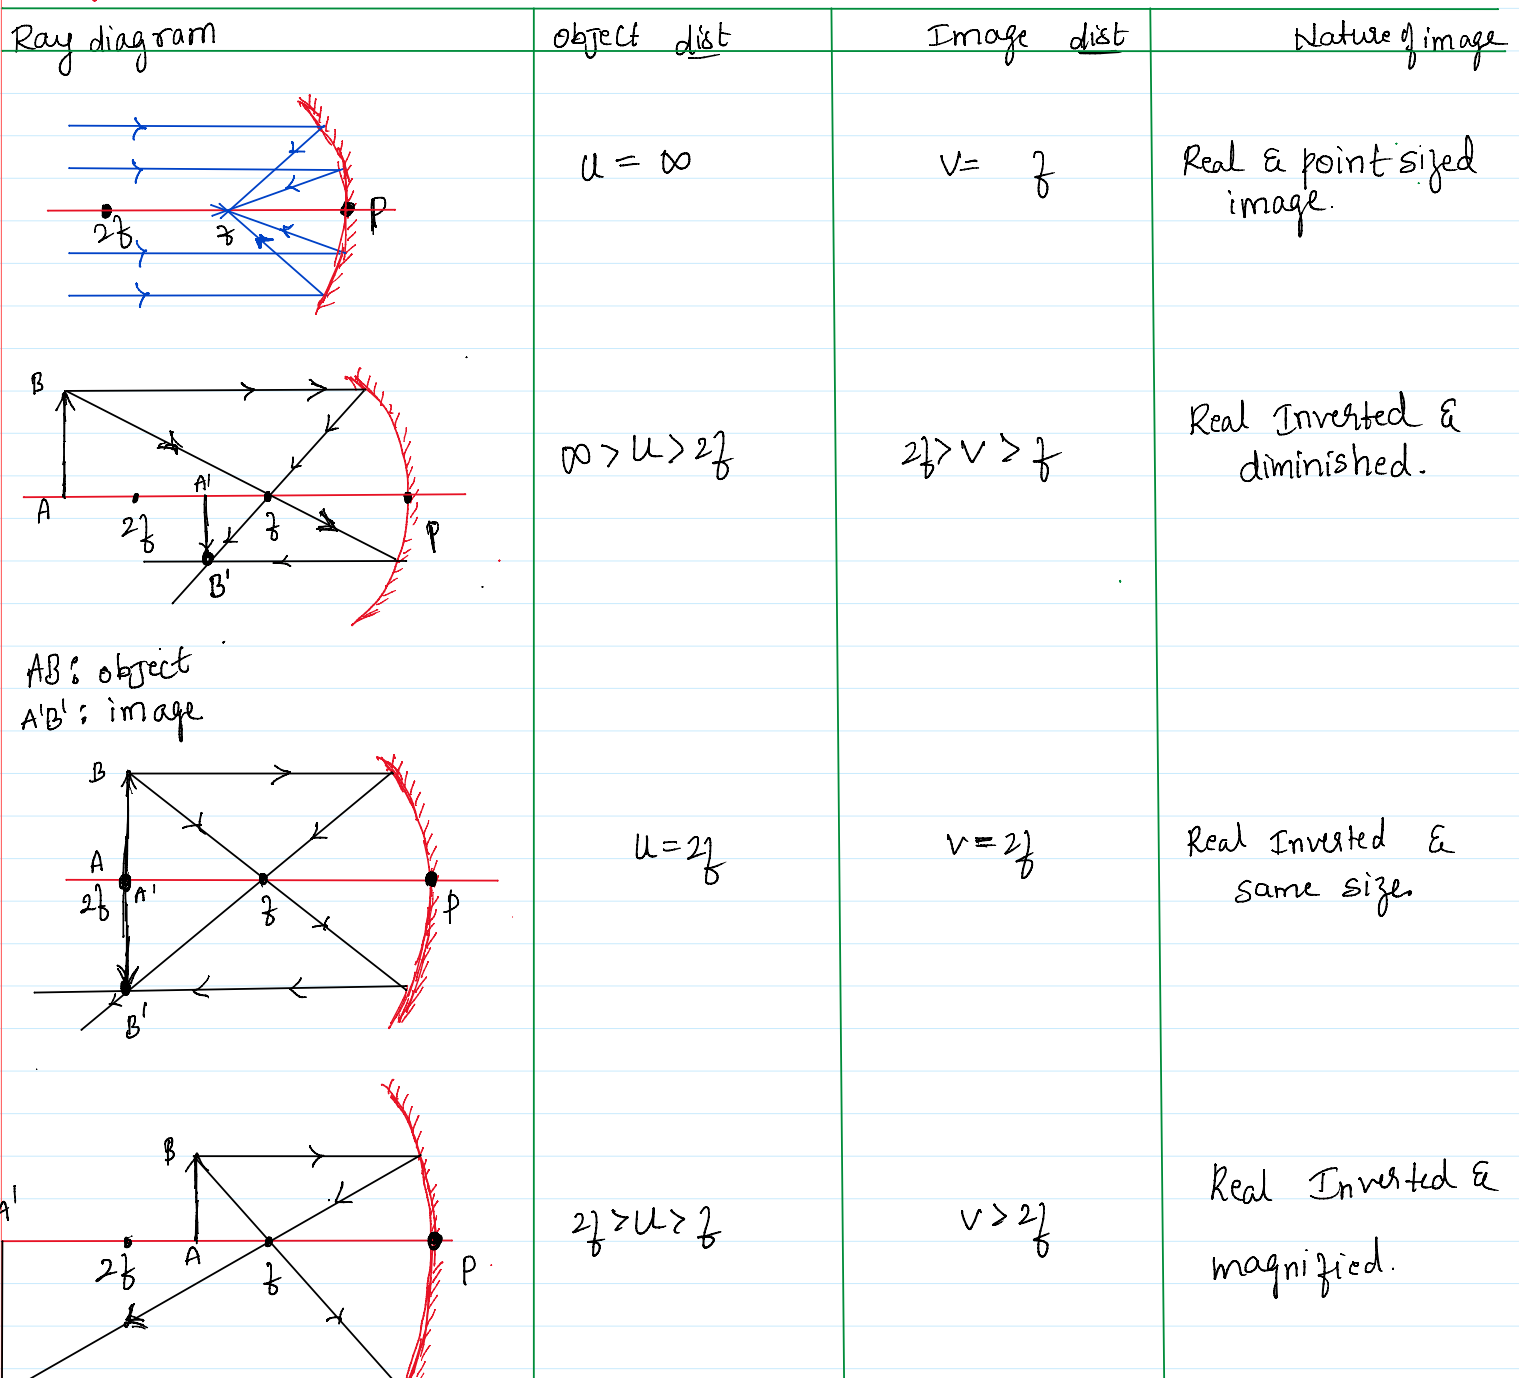 Ray diagram object dist Image dist Nature of image
2f f P
u = ∞
v= f
Real & point sized
image.
B
A 2f A' f P
B'
∞ > u > 2f
2f > v > f
Real Inverted &
diminished.
AB: object
A'B': image
B
A
2f A' f P
B'
u = 2f
v = 2f
Real Inverted &
same size.
B
A'
2f A f P
2f > u > f
v > 2f
Real Inverted &
magnified.